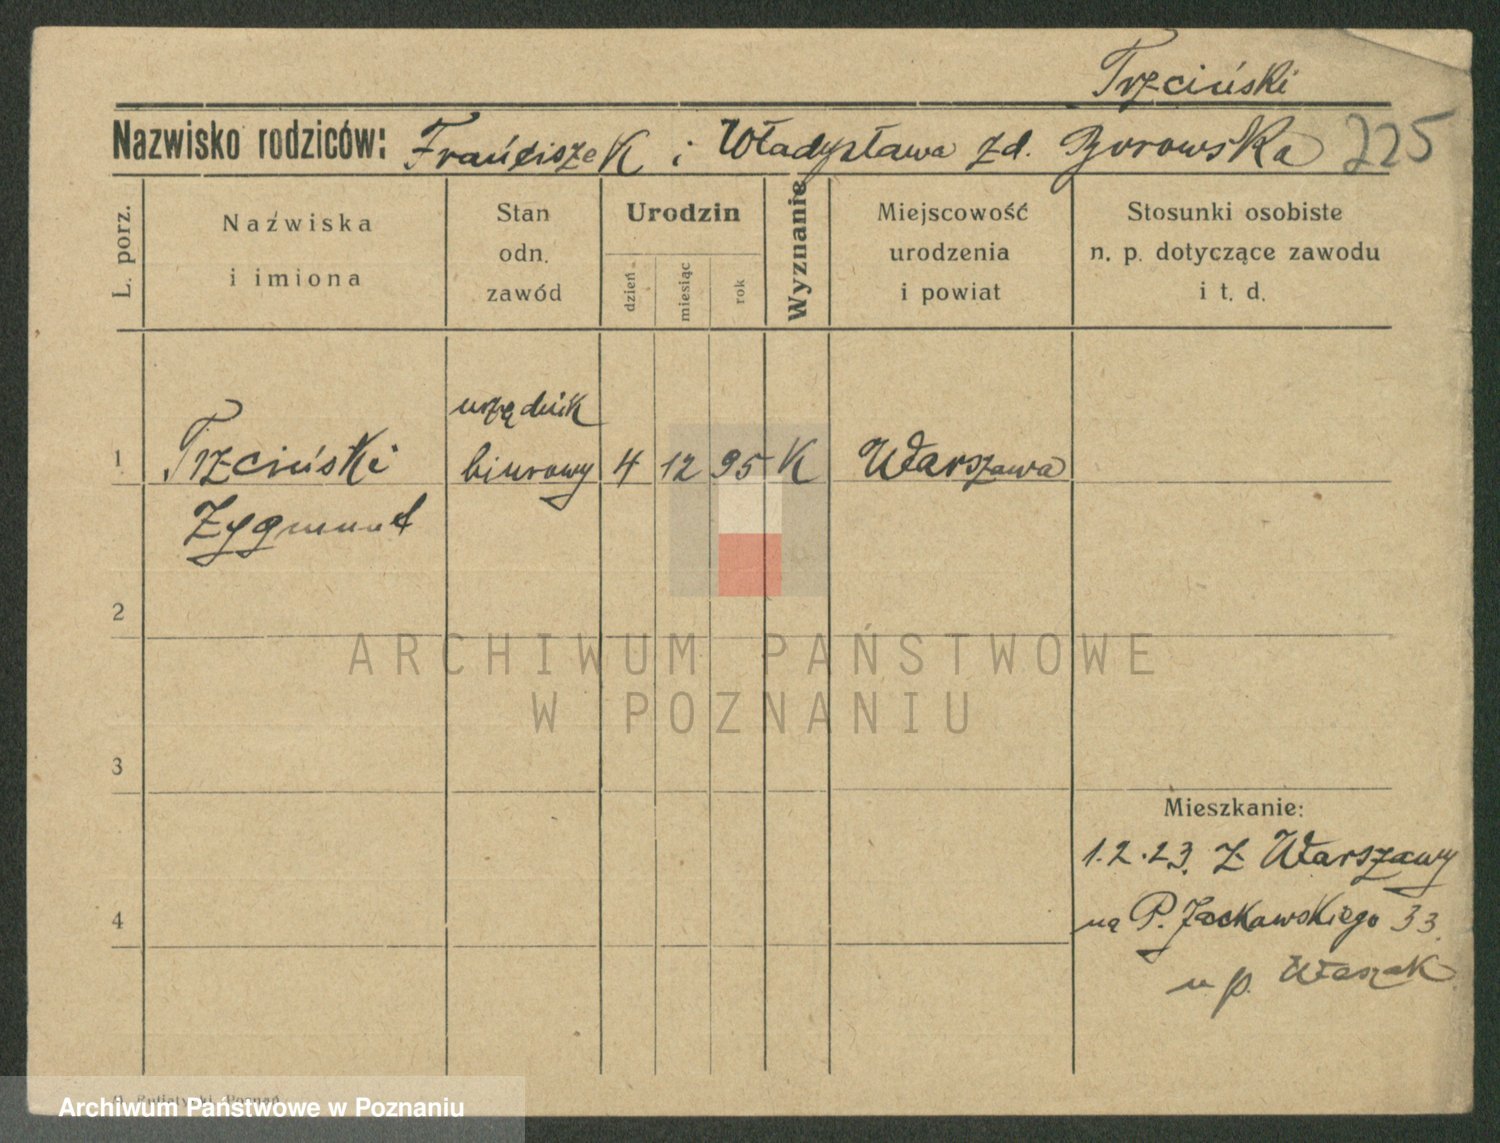 Trzciński
Nazwisko rodziców: Frańciszek i Władysława zd. Borowska 225
L. porz.
Nazwiska
i imiona
Stan
odn.
zawód
Urodzin
dzień
miesiąc
rok
Wyznanie
Miejscowość
urodzenia
i powiat
Stosunki osobiste
n. p. dotyczące zawodu
i t. d.
urzędnik
1 Trzciński biurowy 4 12 95 K Warszawa
Zygmunt
2
ARCHIWUM PAŃSTWOWE
W POZNANIU
3
Mieszkanie:
1.2.23. z Warszawy
4 na P. Jackowskiego 33.
u p. Właszak
Archiwum Państwowe w Poznaniu